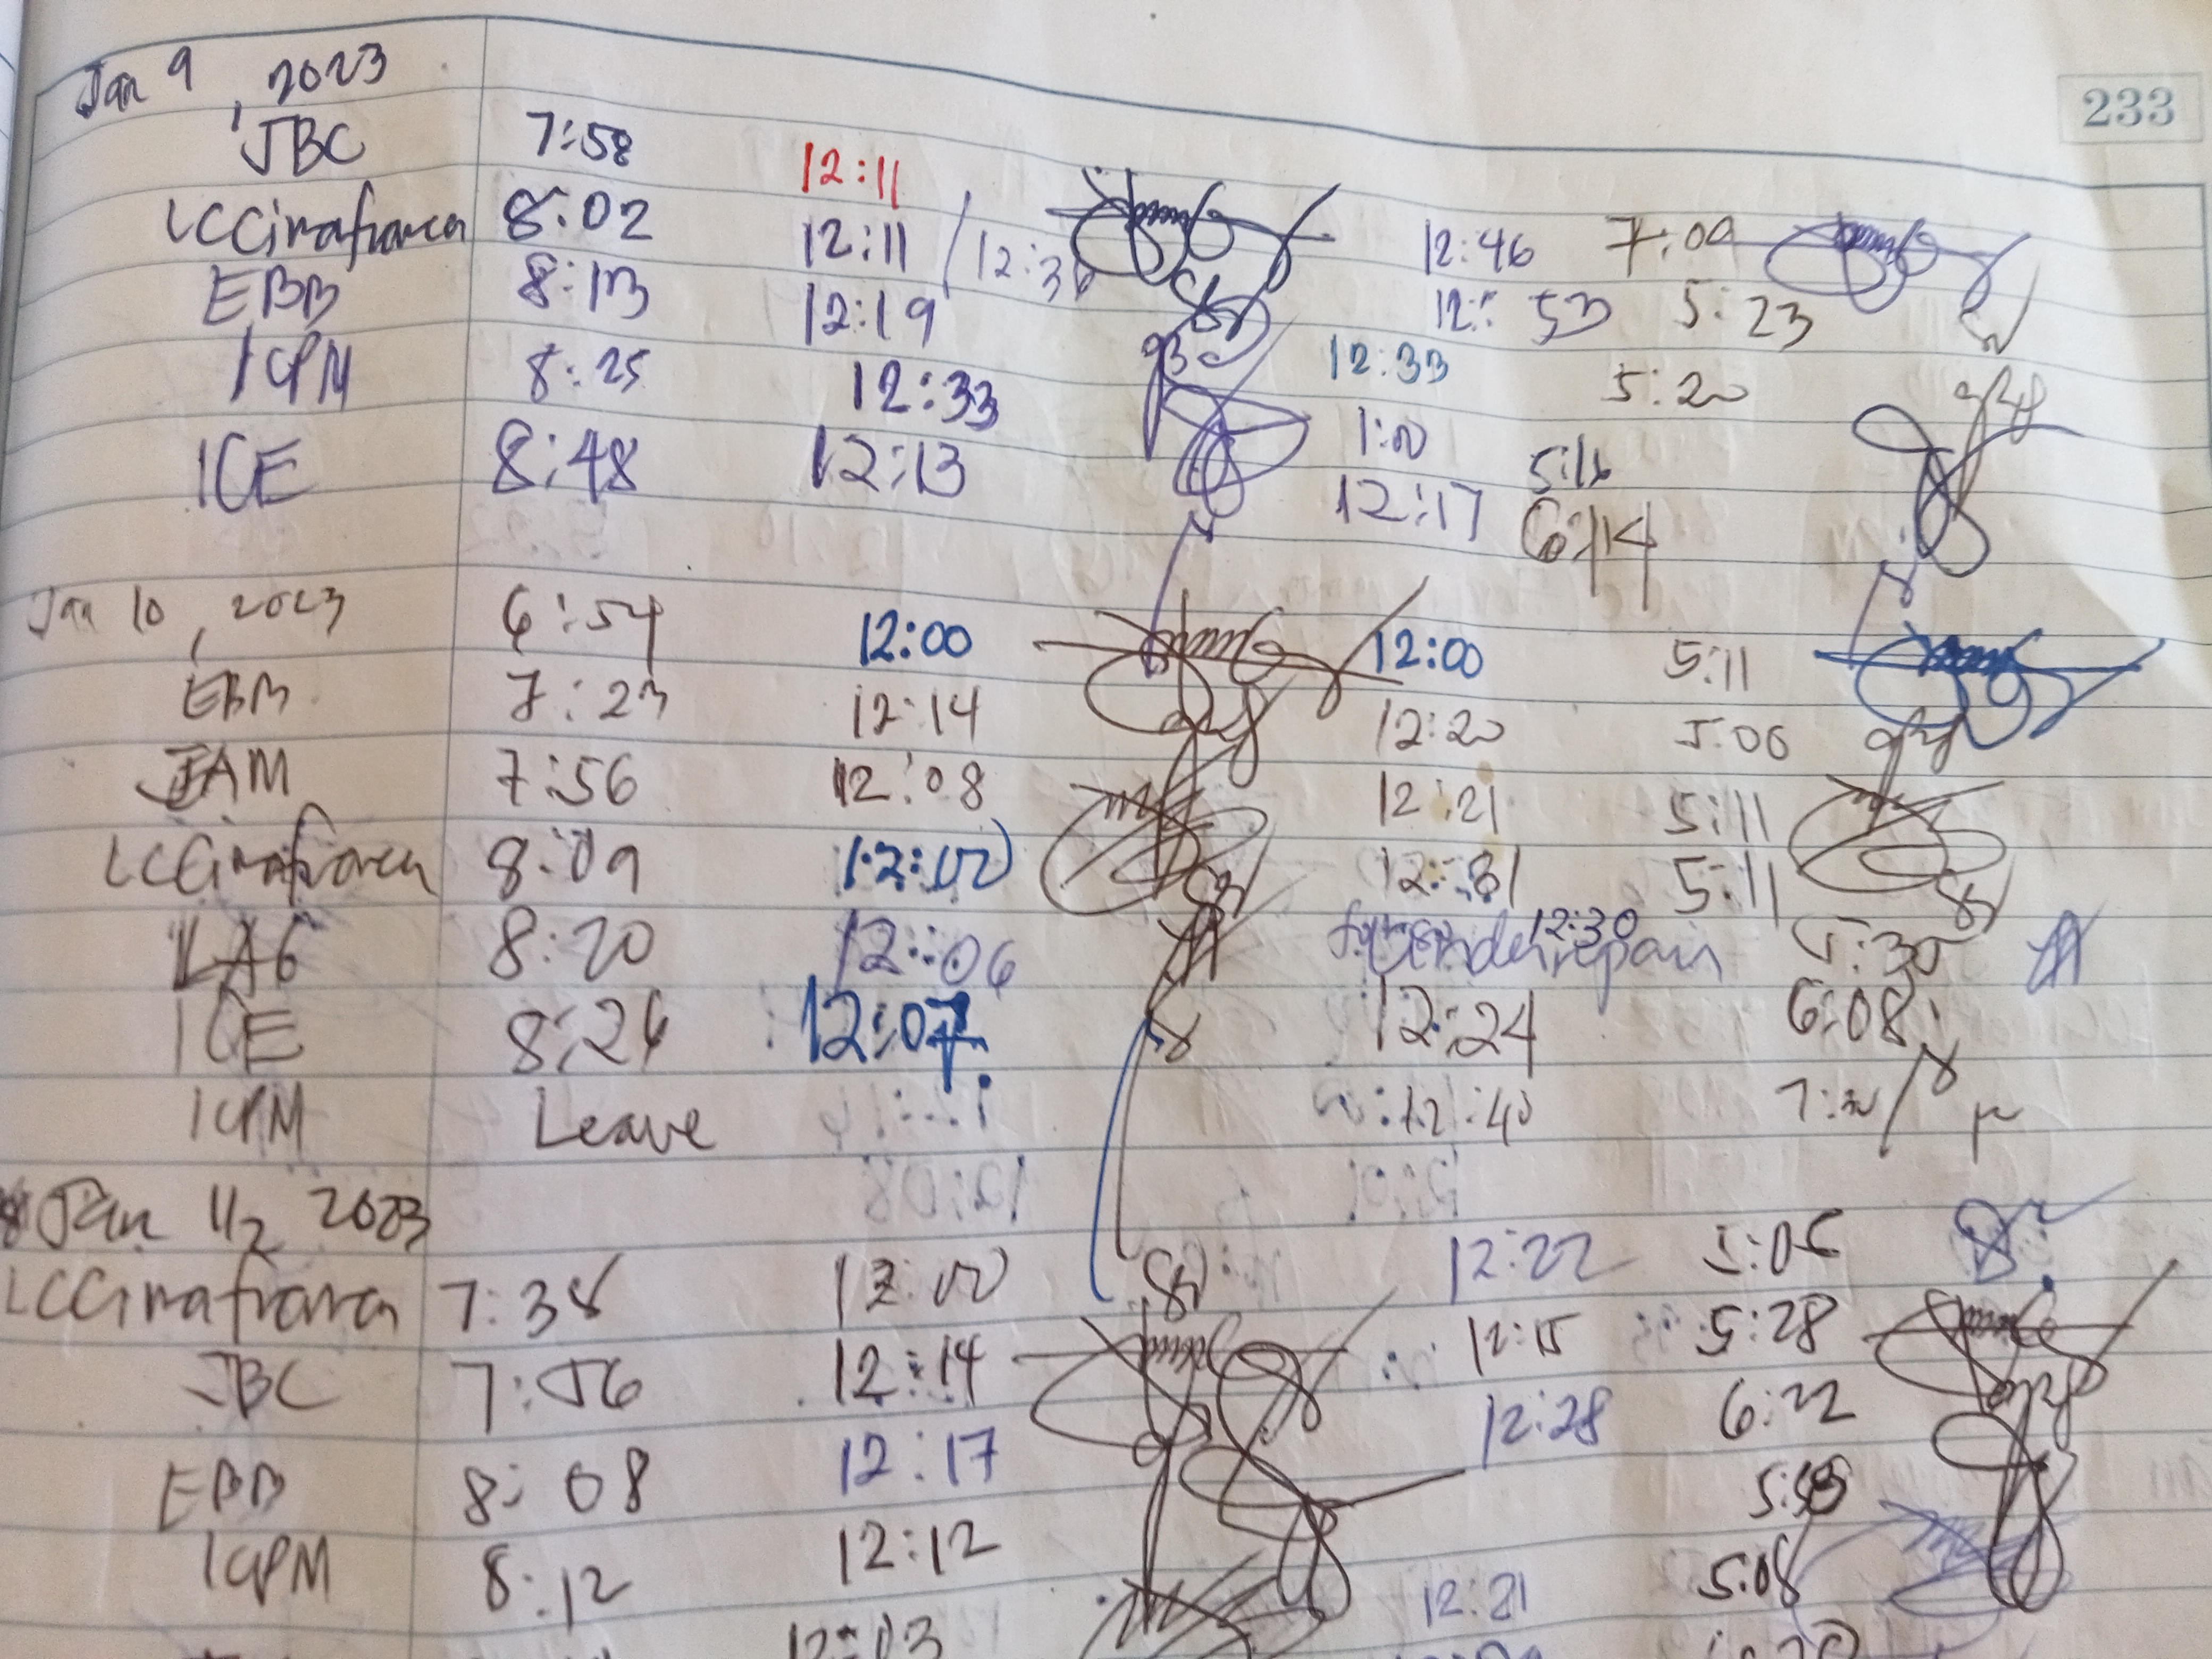 233
Jan 9, 2023
JBC 7:58 12:11 12:46 7:09
LCCimafranca 8:02 12:11 / 12:36 12:53 5:23
EBB 8:13 12:19 12:33 5:20
ICPM 8:25 12:33 1:00 5:16
ICE 8:48 12:13 12:17 6:14
Jan 10, 2023 6:54 12:00 12:00 5:11
EBB 7:23 12:14 12:20 5:06
JAM 7:56 12:08 12:21 5:11
LCCimafranca 8:09 12:00 12:31 5:11
LAG 8:20 12:06 12:30 5:30
ICE 8:24 12:07 12:24 6:08
ICPM Leave 12:40
Jan 11, 2023
LCCimafranca 7:38 12:00 12:22 5:05
JBC 7:56 12:14 12:15 5:28
EBB 8:08 12:17 12:28 6:22
ICPM 8:12 12:12 12:21 5:08
12:03